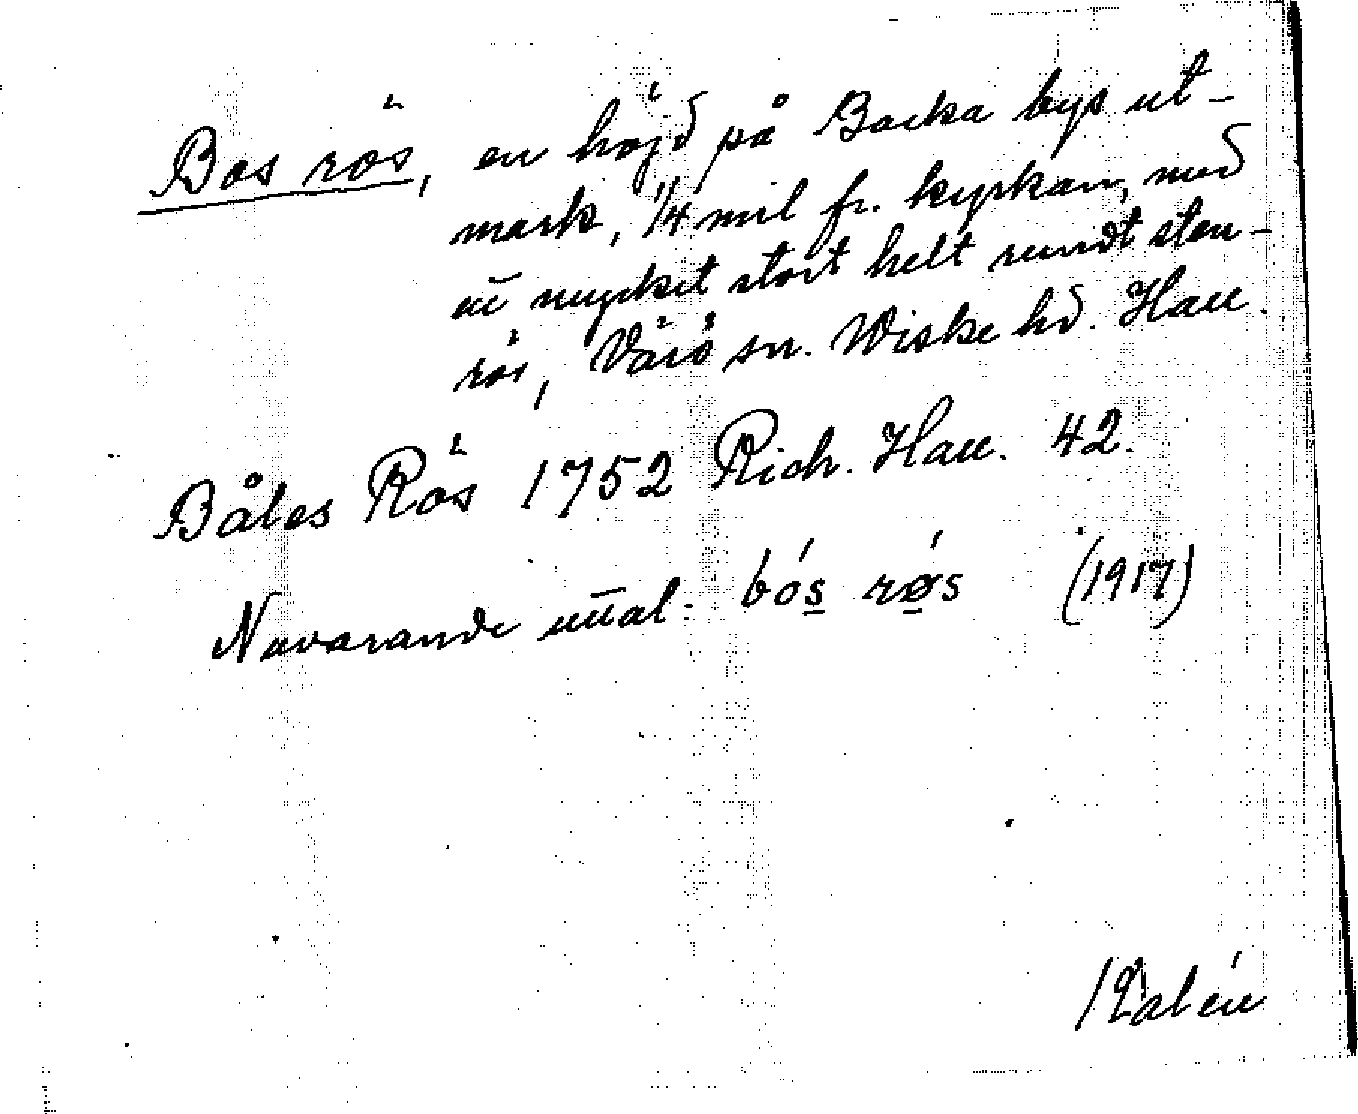 Bos rös, en höjd på Backa bys ut-
mark, 1/4 mil fr. kyrkan, med
ett mycket stort helt rundt sten-
rös, Värö sn. Wiske hd. Hall.
Båles Rös 1752 Rich. Hall. 42.
Nuvarande uttal: bós røs (1917)
/Kalén